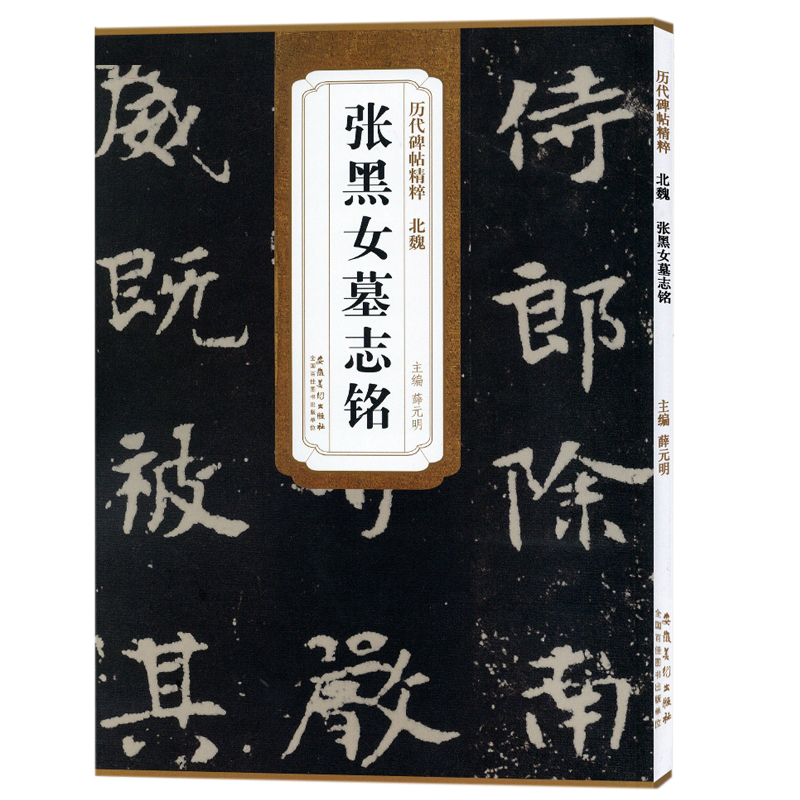 侍郎除南
嚴
威既被其
历代碑帖精粹 北魏
张黑女墓志铭
主编 薛元明
安徽美术出版社
全国百佳图书出版单位
历代碑帖精粹 北魏 张黑女墓志铭
主编 薛元明
安徽美术出版社
全国百佳图书出版单位